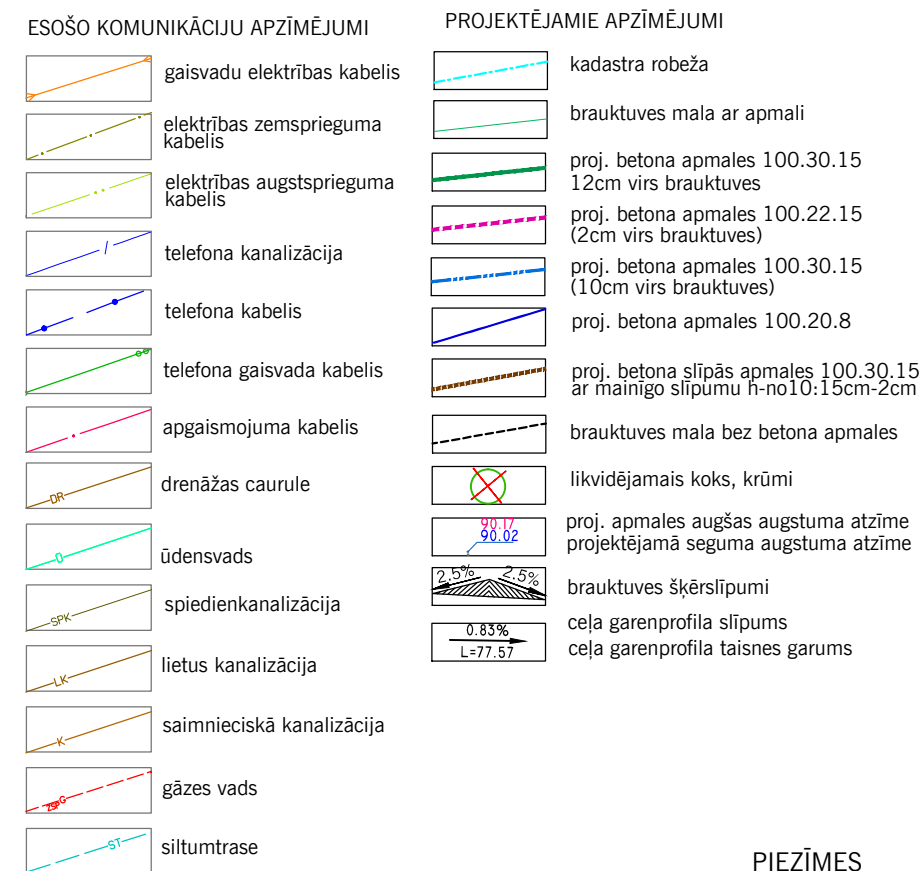 ESOŠO KOMUNIKĀCIJU APZĪMĒJUMI
gaisvadu elektrības kabelis
elektrības zemsprieguma
kabelis
elektrības augstsprieguma
kabelis
telefona kanalizācija
telefona kabelis
telefona gaisvada kabelis
apgaismojuma kabelis
DR
drenāžas caurule
ūdensvads
SPK
spiedienkanalizācija
LK
lietus kanalizācija
K
saimnieciskā kanalizācija
gāzes vads
ST
siltumtrase
PROJEKTĒJAMIE APZĪMĒJUMI
kadastra robeža
brauktuves mala ar apmali
proj. betona apmales 100.30.15
12cm virs brauktuves
proj. betona apmales 100.22.15
(2cm virs brauktuves)
proj. betona apmales 100.30.15
(10cm virs brauktuves)
proj. betona apmales 100.20.8
proj. betona slīpās apmales 100.30.15
ar mainīgo slīpumu h-no10:15cm-2cm
brauktuves mala bez betona apmales
likvidējamais koks, krūmi
90.17
90.02
proj. apmales augšas augstuma atzīme
projektējamā seguma augstuma atzīme
2.5% 2.5%
brauktuves šķērslīpumi
0.83%
L=77.57
ceļa garenprofila slīpums
ceļa garenprofila taisnes garums
PIEZĪMES